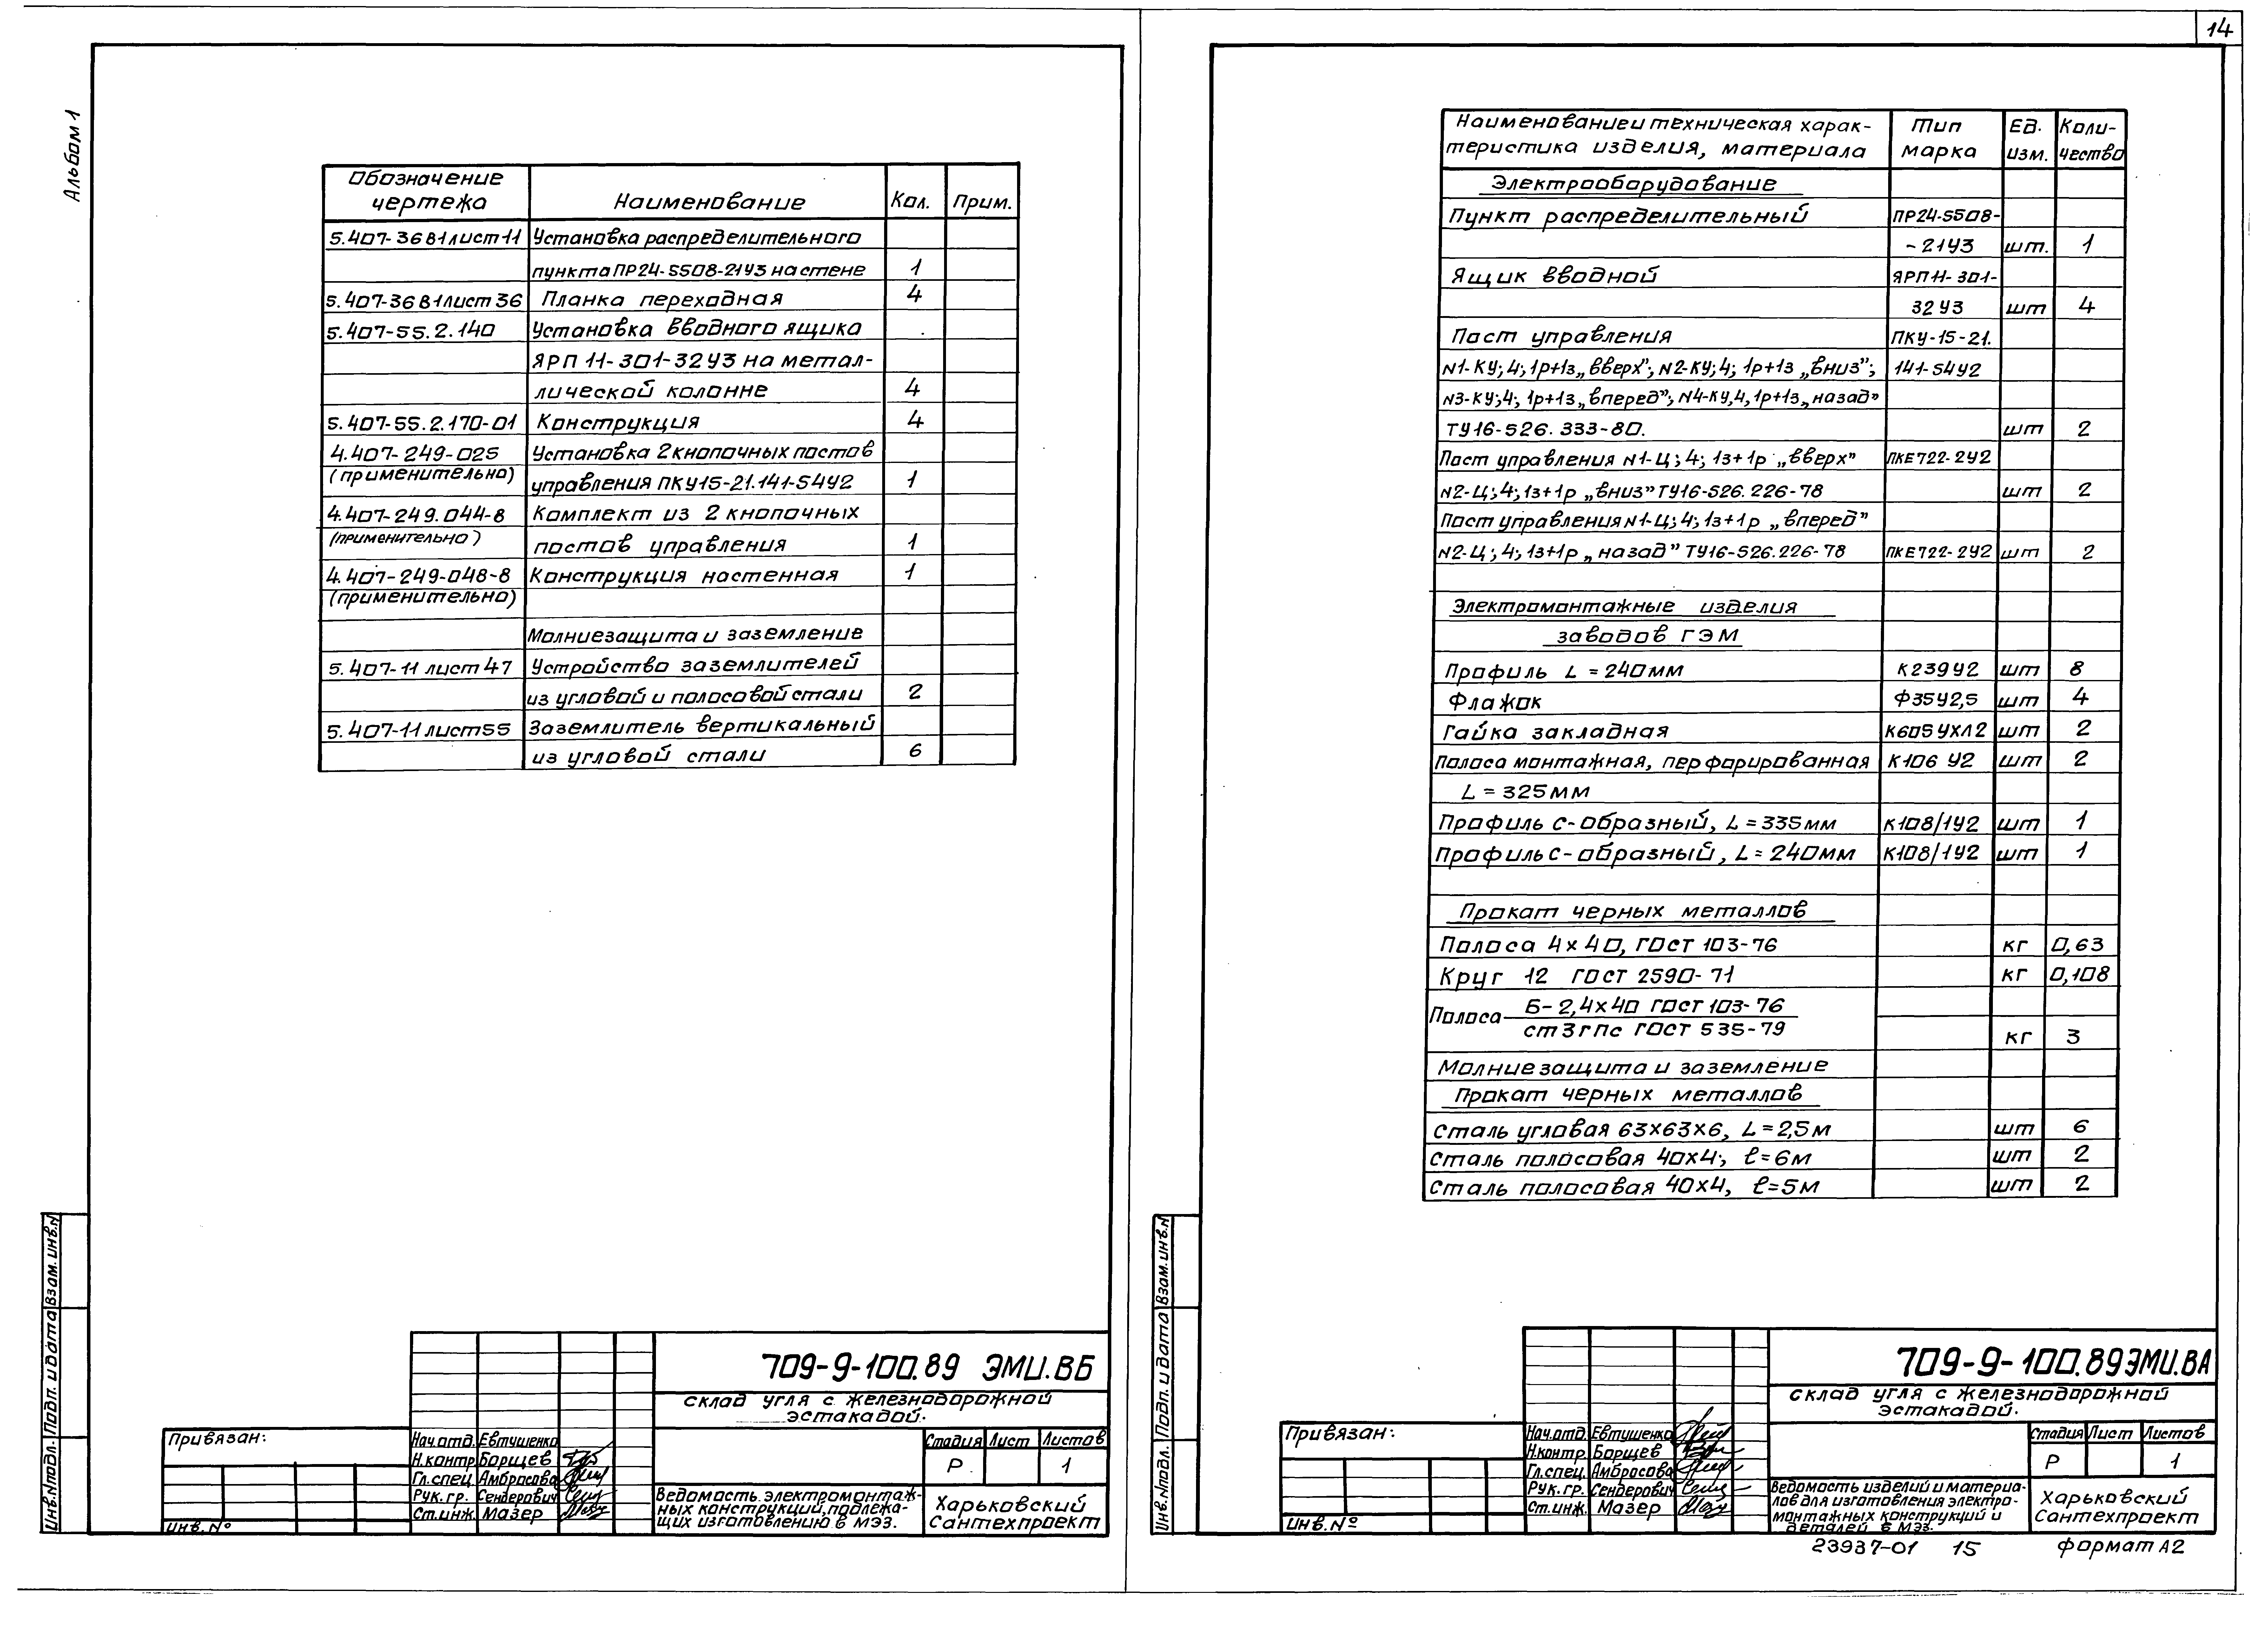 14
Альбом 1
Обозначение чертежа Наименование Кол. Прим.
5.407-36 В1 лист 11 Установка распределительного
пункта ПР24-5508-21У3 на стене 1
5.407-36 В1 лист 36 Планка переходная 4
5.407-55.2.140 Установка вводного ящика
ЯРП 11-301-32У3 на метал-
лической колонне 4
5.407-55.2.170-01 Конструкция 4
4.407-249-025 Установка 2 кнопочных постов
(применительно) управления ПКУ15-21.141-54У2 1
4.407-249.044-8 Комплект из 2 кнопочных
(применительно) постов управления 1
4.407-249-048-8 Конструкция настенная 1
(применительно)
Молниезащита и заземление
5.407-11 лист 47 Устройство заземлителей
из угловой и полосовой стали 2
5.407-11 лист 55 Заземлитель вертикальный
из угловой стали 6
Инв.№подл. Подп. и дата Взам. инв.№
Привязан:
Инв.№
Нач.отд. Евтушенко
Н.контр Борщев
Гл.спец. Амбросова
Рук.гр. Сендерович
Ст.инж. Мазер
709-9-100.89 ЭМИ.ВБ
склад угля с железнодорожной
эстакадой.
Стадия Лист Листов
Р 1
Ведомость электромонтаж-
ных конструкций, подлежа-
щих изготовлению в МЭЗ.
Харьковский
Сантехпроект
Наименование и техническая харак- Тип Ед. Коли-
теристика изделия, материала марка изм. чество
Электрооборудование
Пункт распределительный ПР24-5508-
-21У3 шт. 1
Ящик вводной ЯРП11-301-
32У3 шт 4
Пост управления ПКУ-15-21.
N1-КУ; 4; 1р+1з „вверх"; N2-КУ; 4; 1р+1з „вниз"; 141-54У2
N3-КУ; 4; 1р+1з „вперед"; N4-КУ, 4, 1р+1з „назад"
ТУ16-526.333-80. шт 2
Пост управления N1-Ц; 4; 1з+1р „вверх" ПКЕ722-2У2
N2-Ц; 4; 1з+1р „вниз" ТУ16-526.226-78 шт 2
Пост управления N1-Ц; 4; 1з+1р „вперед"
N2-Ц; 4; 1з+1р „назад" ТУ16-526.226-78 ПКЕ722-2У2 шт 2
Электромонтажные изделия
заводов ГЭМ
Профиль L=240мм К239У2 шт 8
Флажок Ф35У2,5 шт 4
Гайка закладная К605УХЛ2 шт 2
Полоса монтажная, перфорированная К106 У2 шт 2
L=325мм
Профиль С-образный, L=335мм К108/1У2 шт 1
Профиль С-образный, L=240мм К108/1У2 шт 1
Прокат черных металлов
Полоса 4х40, ГОСТ 103-76 кг 0,63
Круг 12 ГОСТ 2590-71 кг 0,108
Полоса Б-2,4х40 ГОСТ 103-76
ст3гпс ГОСТ 535-79 кг 3
Молниезащита и заземление
Прокат черных металлов
Сталь угловая 63х63х6, L=2,5м шт 6
Сталь полосовая 40х4, ℓ=6м шт 2
Сталь полосовая 40х4, ℓ=5м шт 2
Инв.№подл. Подп. и дата Взам. инв.№
Привязан:
Инв.№
Нач.отд. Евтушенко
Н.контр. Борщев
Гл.спец. Амбросова
Рук.гр. Сендерович
Ст.инж. Мазер
709-9-100.89 ЭМИ.ВА
склад угля с железнодорожной
эстакадой.
Стадия Лист Листов
Р 1
Ведомость изделий и материа-
лов для изготовления электро-
монтажных конструкций и
деталей в МЭЗ.
Харьковский
Сантехпроект
23937-01 15 формат А2